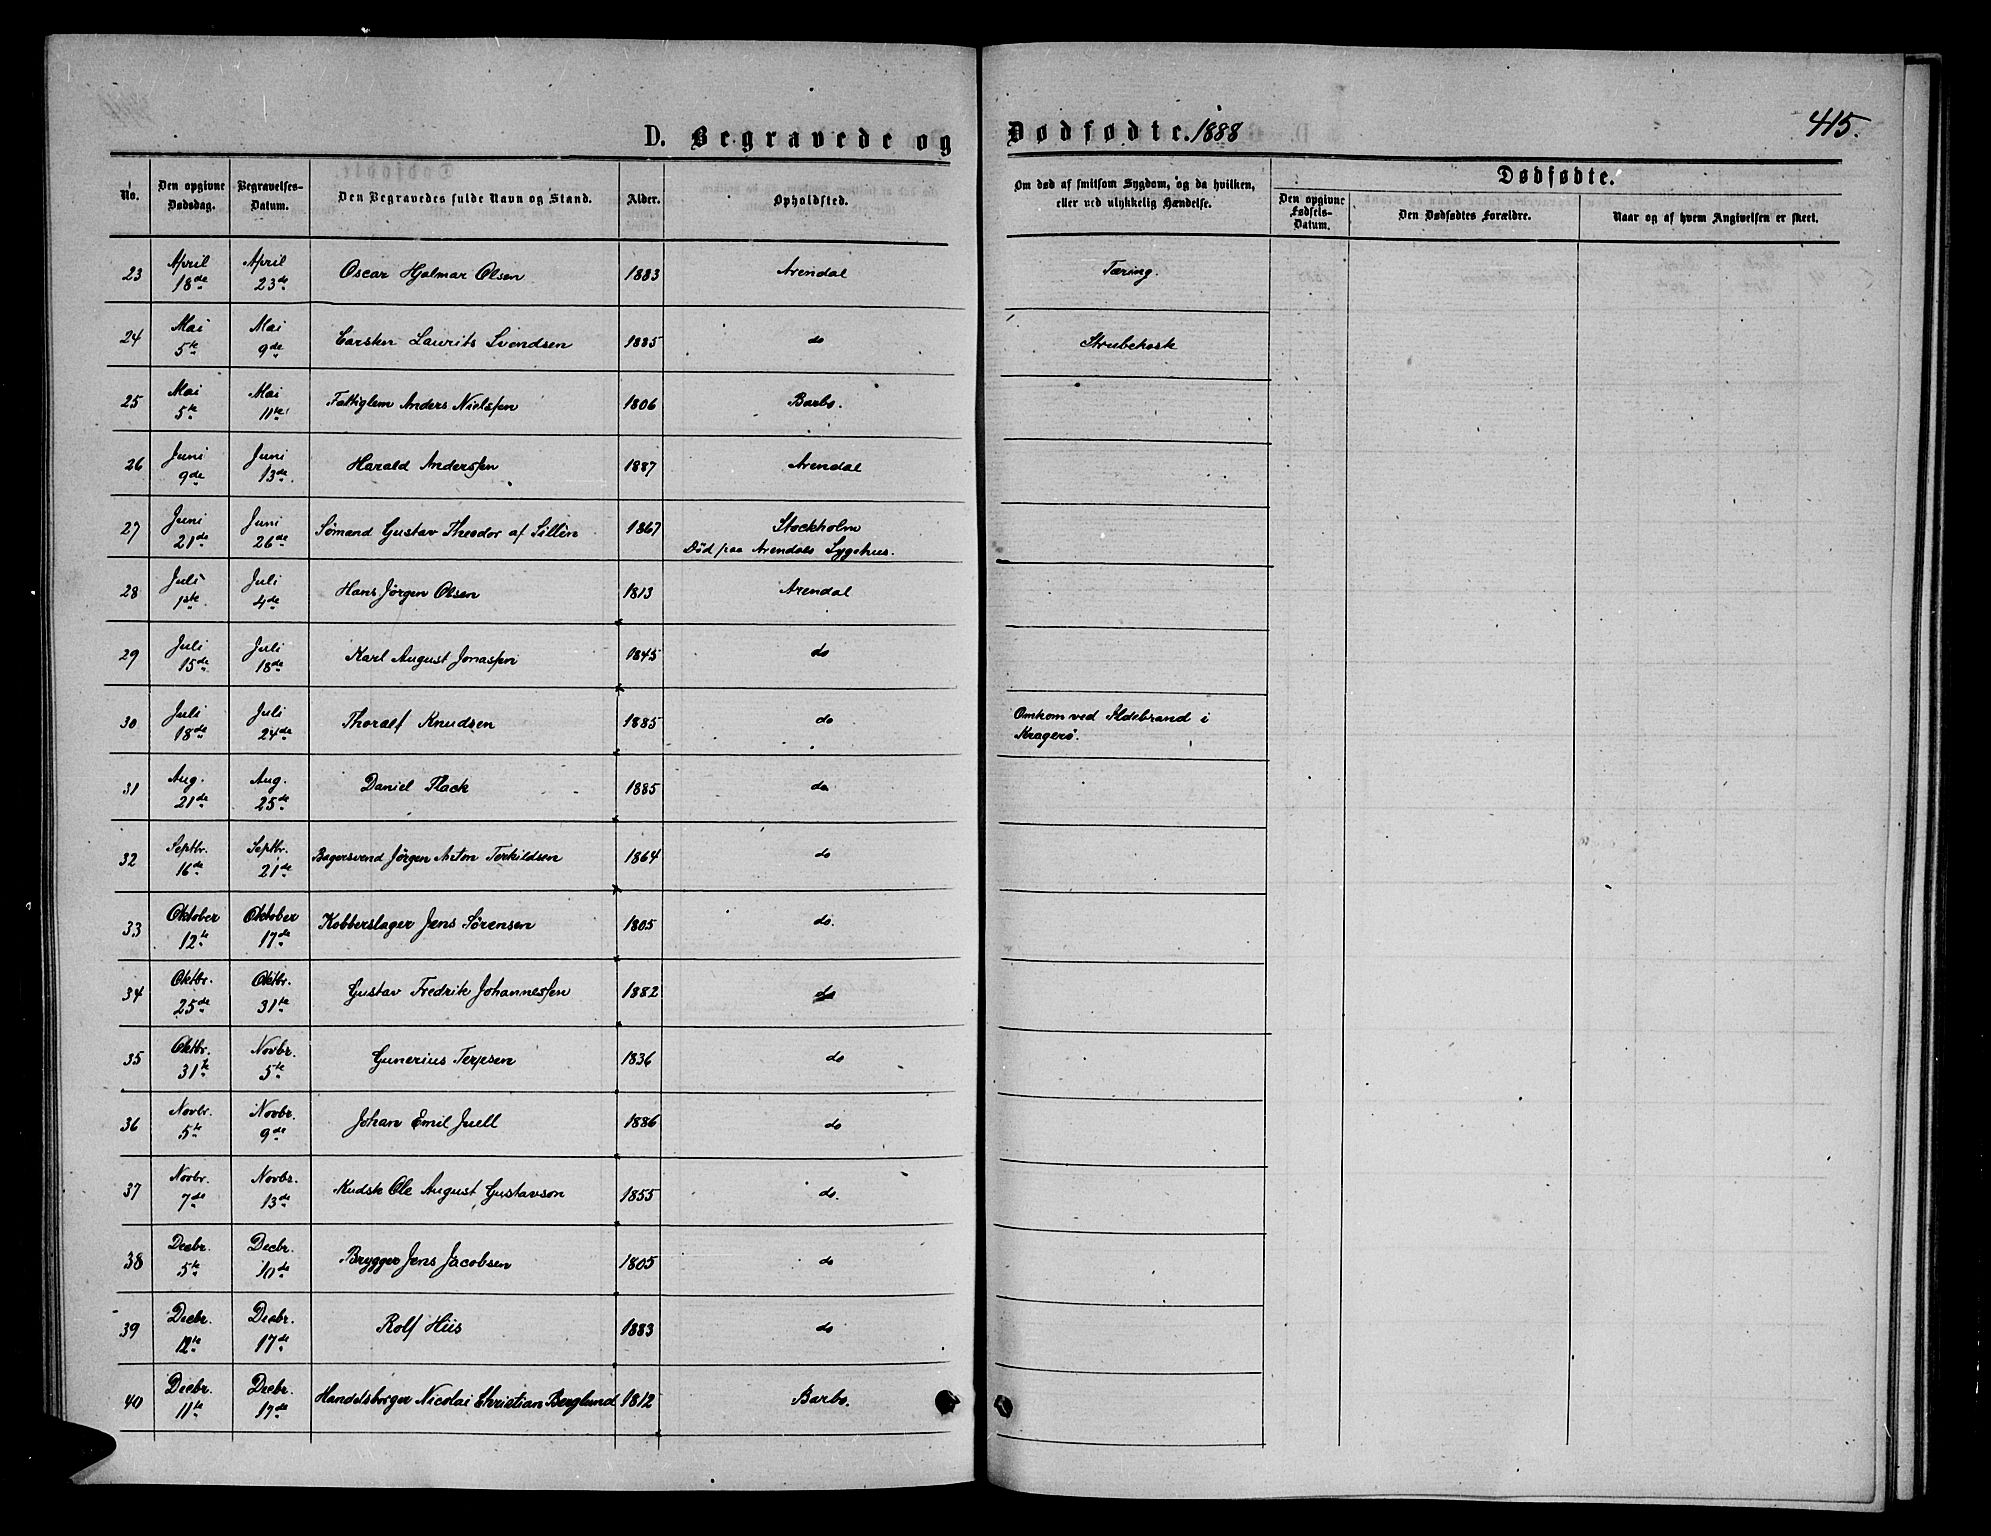 D. Begravede og Dødfødte. 1888
415.
No. Den opgivne Dødsdag. Begravelses-Datum. Den Begravedes fulde Navn og Stand. Alder. Opholdsted. Om død af smitsom Sygdom, og da hvilken, eller ved ulykkelig Hændelse. Dødfødte.
Den opgivne Fødsels-Datum. Den Dødfødtes Forældre. Naar og af hvem Angivelsen er skeet.
23 April 18de April 23de Oscar Hjalmar Olsen 1883 Arendal Tæring.
24 Mai 5te Mai 9de Carsten Laurits Svendsen 1885 do Strubehoste
25 Mai 5te Mai 11te Fattiglem Anders Nielssen 1806 Barbo.
26 Juni 9de Juni 13de Harald Anderssen 1887 Arendal
27 Juni 21de Juni 26de Sømand Gustav Theodor af Sillén 1867 Stockholm
Død paa Arendals Sygehus.
28 Juli 1ste Juli 4de Hans Jørgen Olsen 1813 Arendal
29 Juli 15de Juli 18de Karl August Jonassen 1845 do
30 Juli 18de Juli 24de Thoralf Knudsen 1885 do Omkom ved Ildebrand i
Kragerø.
31 Aug. 21de Aug. 25de Daniel Flack 1885 do
32 Septbr. 16de Septbr. 21de Bagersvend Jørgen Anton Terkildsen 1864 do
33 Oktober 12te Oktober 17de Kobberslager Jens Sørensen 1805 do.
34 Oktbr. 25de Oktbr. 31te Gustav Fredrik Johannessen 1882 do
35 Oktbr. 31te Novbr. 5te Gunerius Terjesen 1836 do
36 Novbr. 5te Novbr. 9de Johan Emil Juell 1886 do
37 Novbr. 7de Novbr. 13de Kudsk Ole August Gustavson 1855 do.
38 Decbr. 5te Decbr. 10de Brygger Jens Jacobsen 1805 do
39 Decbr. 12te Decbr. 17de Rolf Hiis 1883 do
40 Decbr. 11te Decbr. 17de Handelsborger Nicolai Christian Berglund 1812 Barbo.